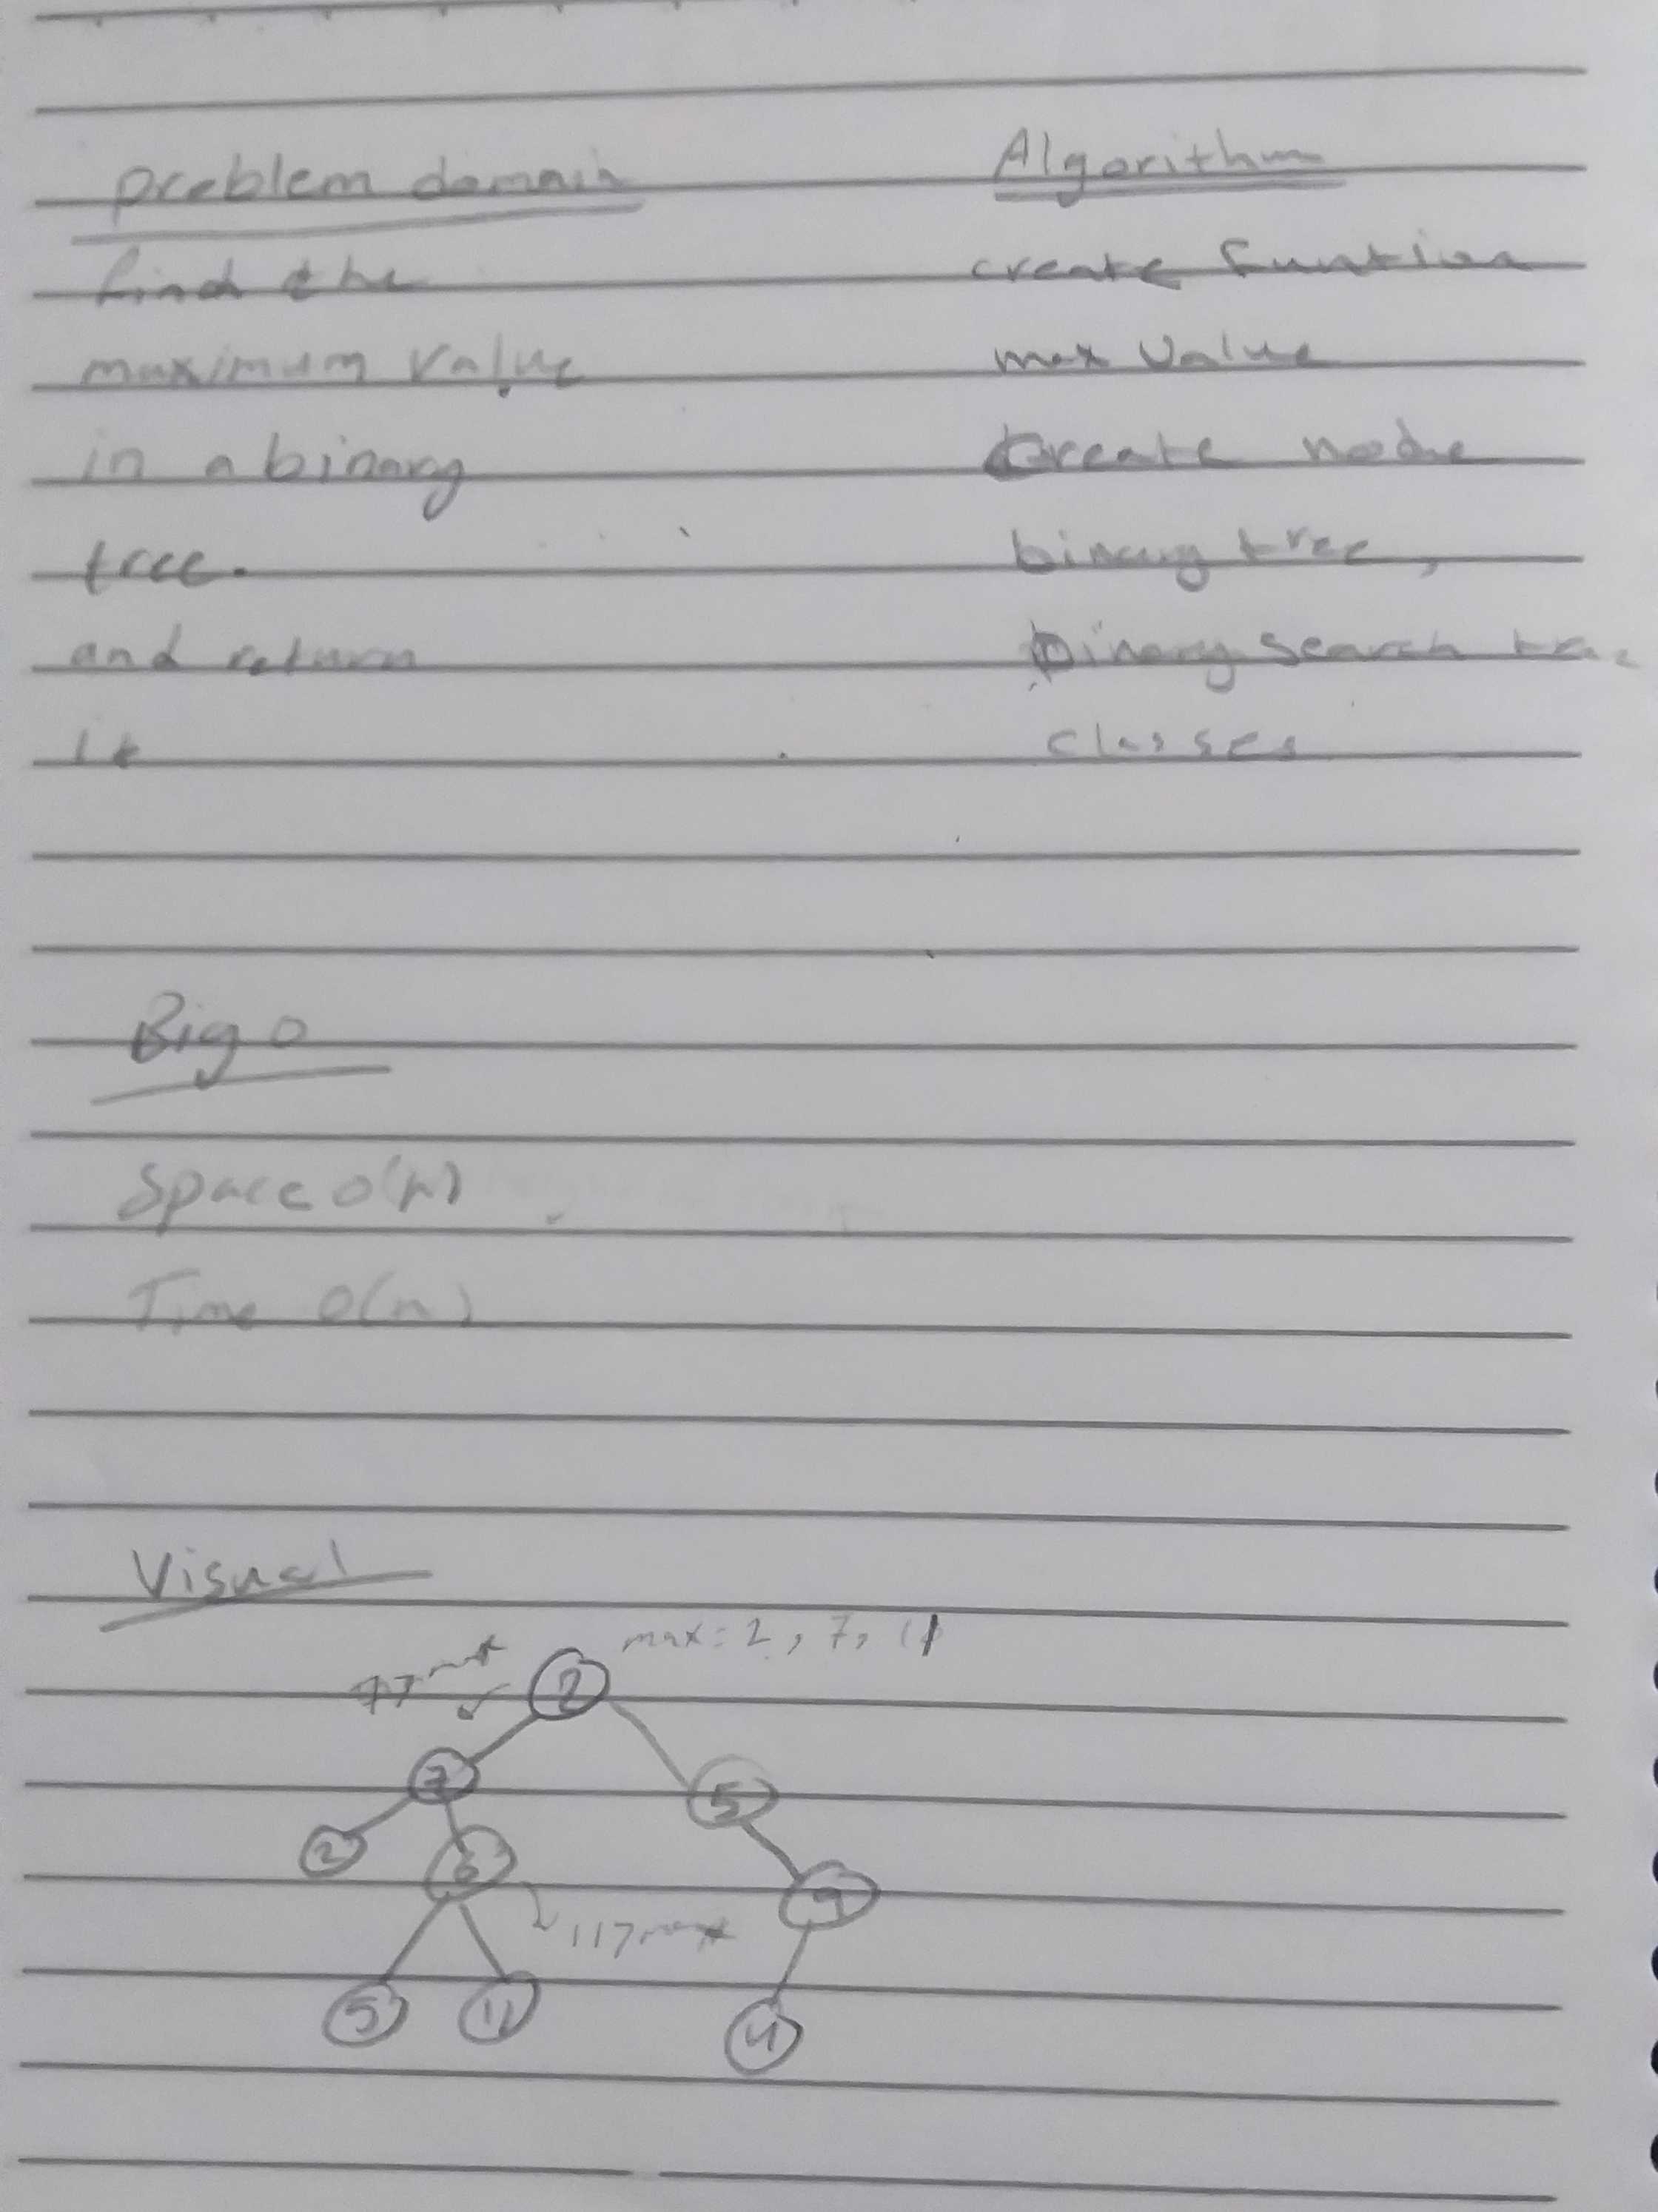 problem domain
find the
maximum value
in a binary
tree.
and return
it
Algorithm
create funtion
max value
create node
binary tree,
binary search tree
classes
Big O
Space O(n)
Time O(n)
Visual
max: 2, 7, 11
7>max
2
7
5
2
6
9
11>max
5
11
4